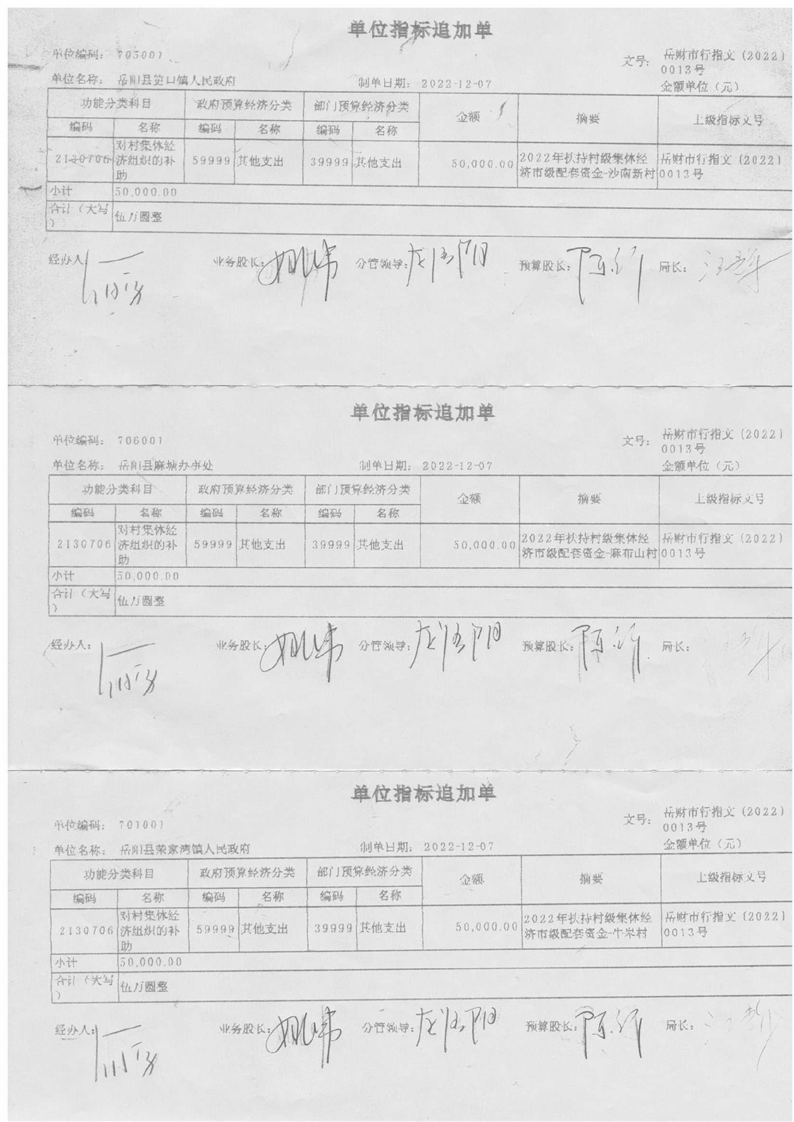 单位指标追加单
单位编码： 703001 文号： 岳财市行指文（2022）
0013号
单位名称： 岳阳县筻口镇人民政府 制单日期： 2022-12-07 金额单位（元）
功能分类科目 政府预算经济分类 部门预算经济分类 金额 摘要 上级指标文号
编码 名称 编码 名称 编码 名称
2130706 对村集体经济组织的补助 59999 其他支出 39999 其他支出 50,000.00 2022年扶持村级集体经济市级配套资金-沙南新村 岳财市行指文（2022）0013号
小计 50,000.00
合计（大写） 伍万圆整
经办人： 业务股长： 分管领导： 预算股长： 局长：
单位指标追加单
单位编码： 706001 文号： 岳财市行指文（2022）
0013号
单位名称： 岳阳县麻塘办事处 制单日期： 2022-12-07 金额单位（元）
功能分类科目 政府预算经济分类 部门预算经济分类 金额 摘要 上级指标文号
编码 名称 编码 名称 编码 名称
2130706 对村集体经济组织的补助 59999 其他支出 39999 其他支出 50,000.00 2022年扶持村级集体经济市级配套资金-麻布山村 岳财市行指文（2022）0013号
小计 50,000.00
合计（大写） 伍万圆整
经办人： 业务股长： 分管领导： 预算股长： 局长：
单位指标追加单
单位编码： 701001 文号： 岳财市行指文（2022）
0013号
单位名称： 岳阳县荣家湾镇人民政府 制单日期： 2022-12-07 金额单位（元）
功能分类科目 政府预算经济分类 部门预算经济分类 金额 摘要 上级指标文号
编码 名称 编码 名称 编码 名称
2130706 对村集体经济组织的补助 59999 其他支出 39999 其他支出 50,000.00 2022年扶持村级集体经济市级配套资金-牛皋村 岳财市行指文（2022）0013号
小计 50,000.00
合计（大写） 伍万圆整
经办人： 业务股长： 分管领导： 预算股长： 局长：